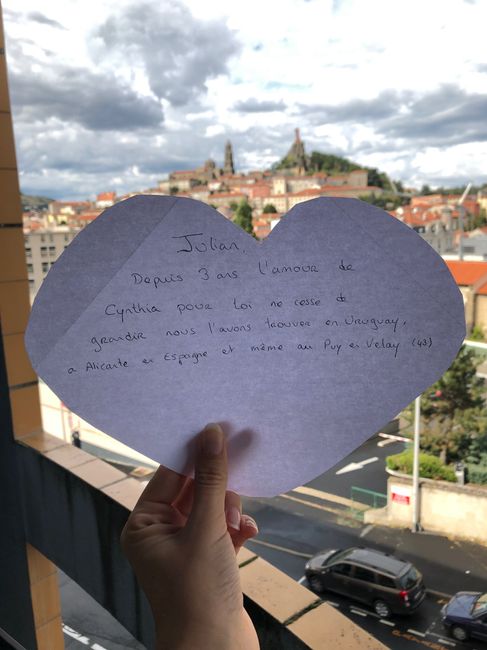 Julian,
Depuis 3 ans l'amour de
Cynthia pour toi ne cesse de
grandir nous l'avons trouver en Uruguay,
a Alicante en Espagne et même au Puy en Velay (43)